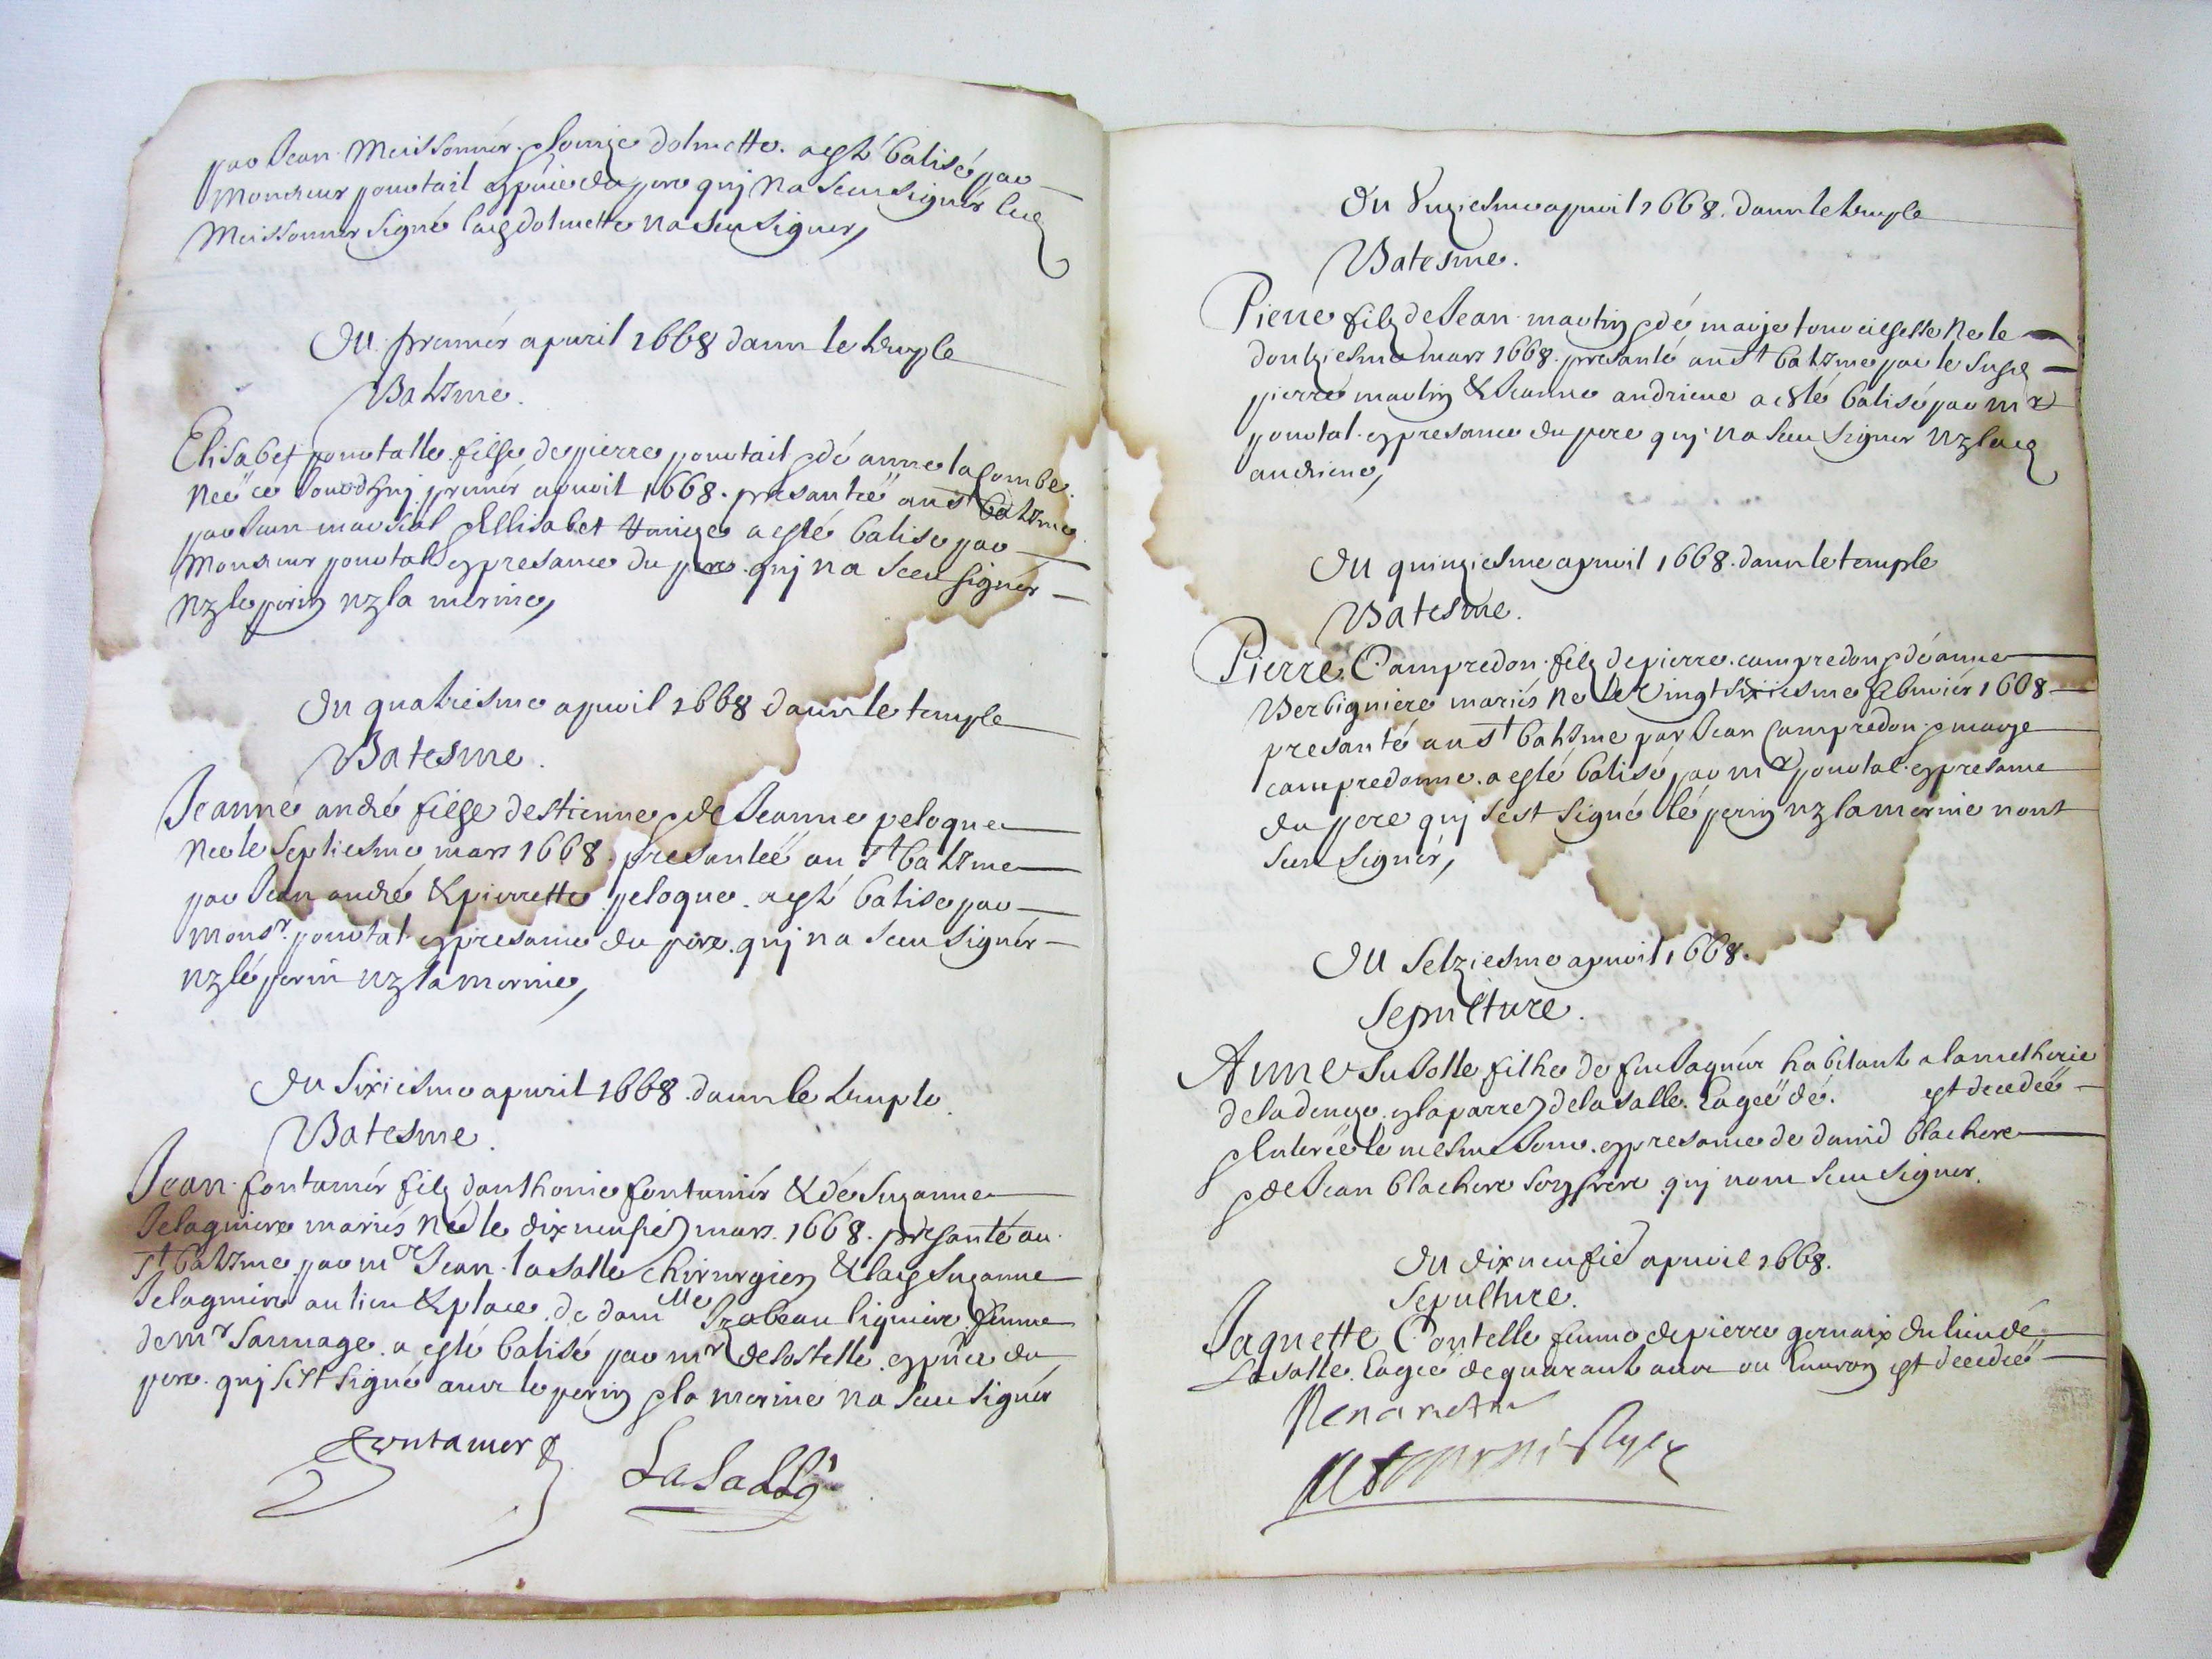 par Jean Meissonnier Louize dolmette a esté batisé par
Monsieur pourtail en pnce du pere quj na sceu signér led
Meissonnier signé lad dolmette na sceu signer,
Du premiér apuril 1668 dans le temple
Batesme.
Elisabet pourtalle fillhe de pierre pourtail & dé anne lacombe
néë cé Jourdhuj premiér apuril 1668. presantéë au St batesme
par Jean marsial & Ellisabet a esté batise par
Monsieur pourtal en presance du pere quj na sceu signér
ny le perin ny la merine,
Du quatriesme apuril 1668 dans le temple
Batesme.
Jeanne andré fillhe destienne & de Jeanne peloque
née le septiesme mars 1668. presantéë au St batesme
par Jean andré & pierrette peloque. a esté batise par
Monsr. pourtal en presance du pere quj na sceu signér
ny lé perin ny la merine,
Du sixiesme apuril 1668. dans le temple.
Batesme.
Jean fontaniér filz danthonie fontaniér & dé Suzanne
Salaguiere mariés né le dixneufie mars. 1668. presanté au
St batesme par mr Jean lasalle chirurgien & lad Suzanne
Salaguiere au lieu & place de damlle Izabeau liguiere femme
de mr sauuage. a esté batisé par mr delostelle en pnce du
pere quj sest signé auec le perin & la merine na sceu signér
Fontanier
LaSalle
Du Vnziesme apuril 1668. dans le temple
Batesme.
Pierre filz de Jean martin & dé marje né le
doutziesme mars 1668. presanté au St batesme par le susd
pierre martin & Jeanne andrieue a esté batisé par mr
pourtal en presance du pere quj na sceu signer ny lad
andrieue,
Du quinziesme apuril 1668. dans le temple
Batesme.
Pierre Campredon filz de pierre campredon & dé anne
Verbiguiere mariés né le vingt sixiesme feburier 1668
presanté au St batesme par Jean Campredon & marge
campredonne. a esté batisé par mr pourtal en presance
du pere quj sest signé lé perin ny la merine nont
sceu signér,
Du setziesme apuril 1668.
Sepulture.
Anne filhe de feu Jaques habitant a la metherie
de la en la parre de lasalle. Eagéë dé. est decedéë
& Enteréë le mesme Jour en presance de dauid blachere
& de Jean blachere son frere quj nont sceu signer.
Du dixneufie apuril 1668.
Sepulture.
Jaquette Contelle femme de pierre geruaix du lieu dé
Lasalle. Eagéë de quarante ans ou Enuiron est decedéë